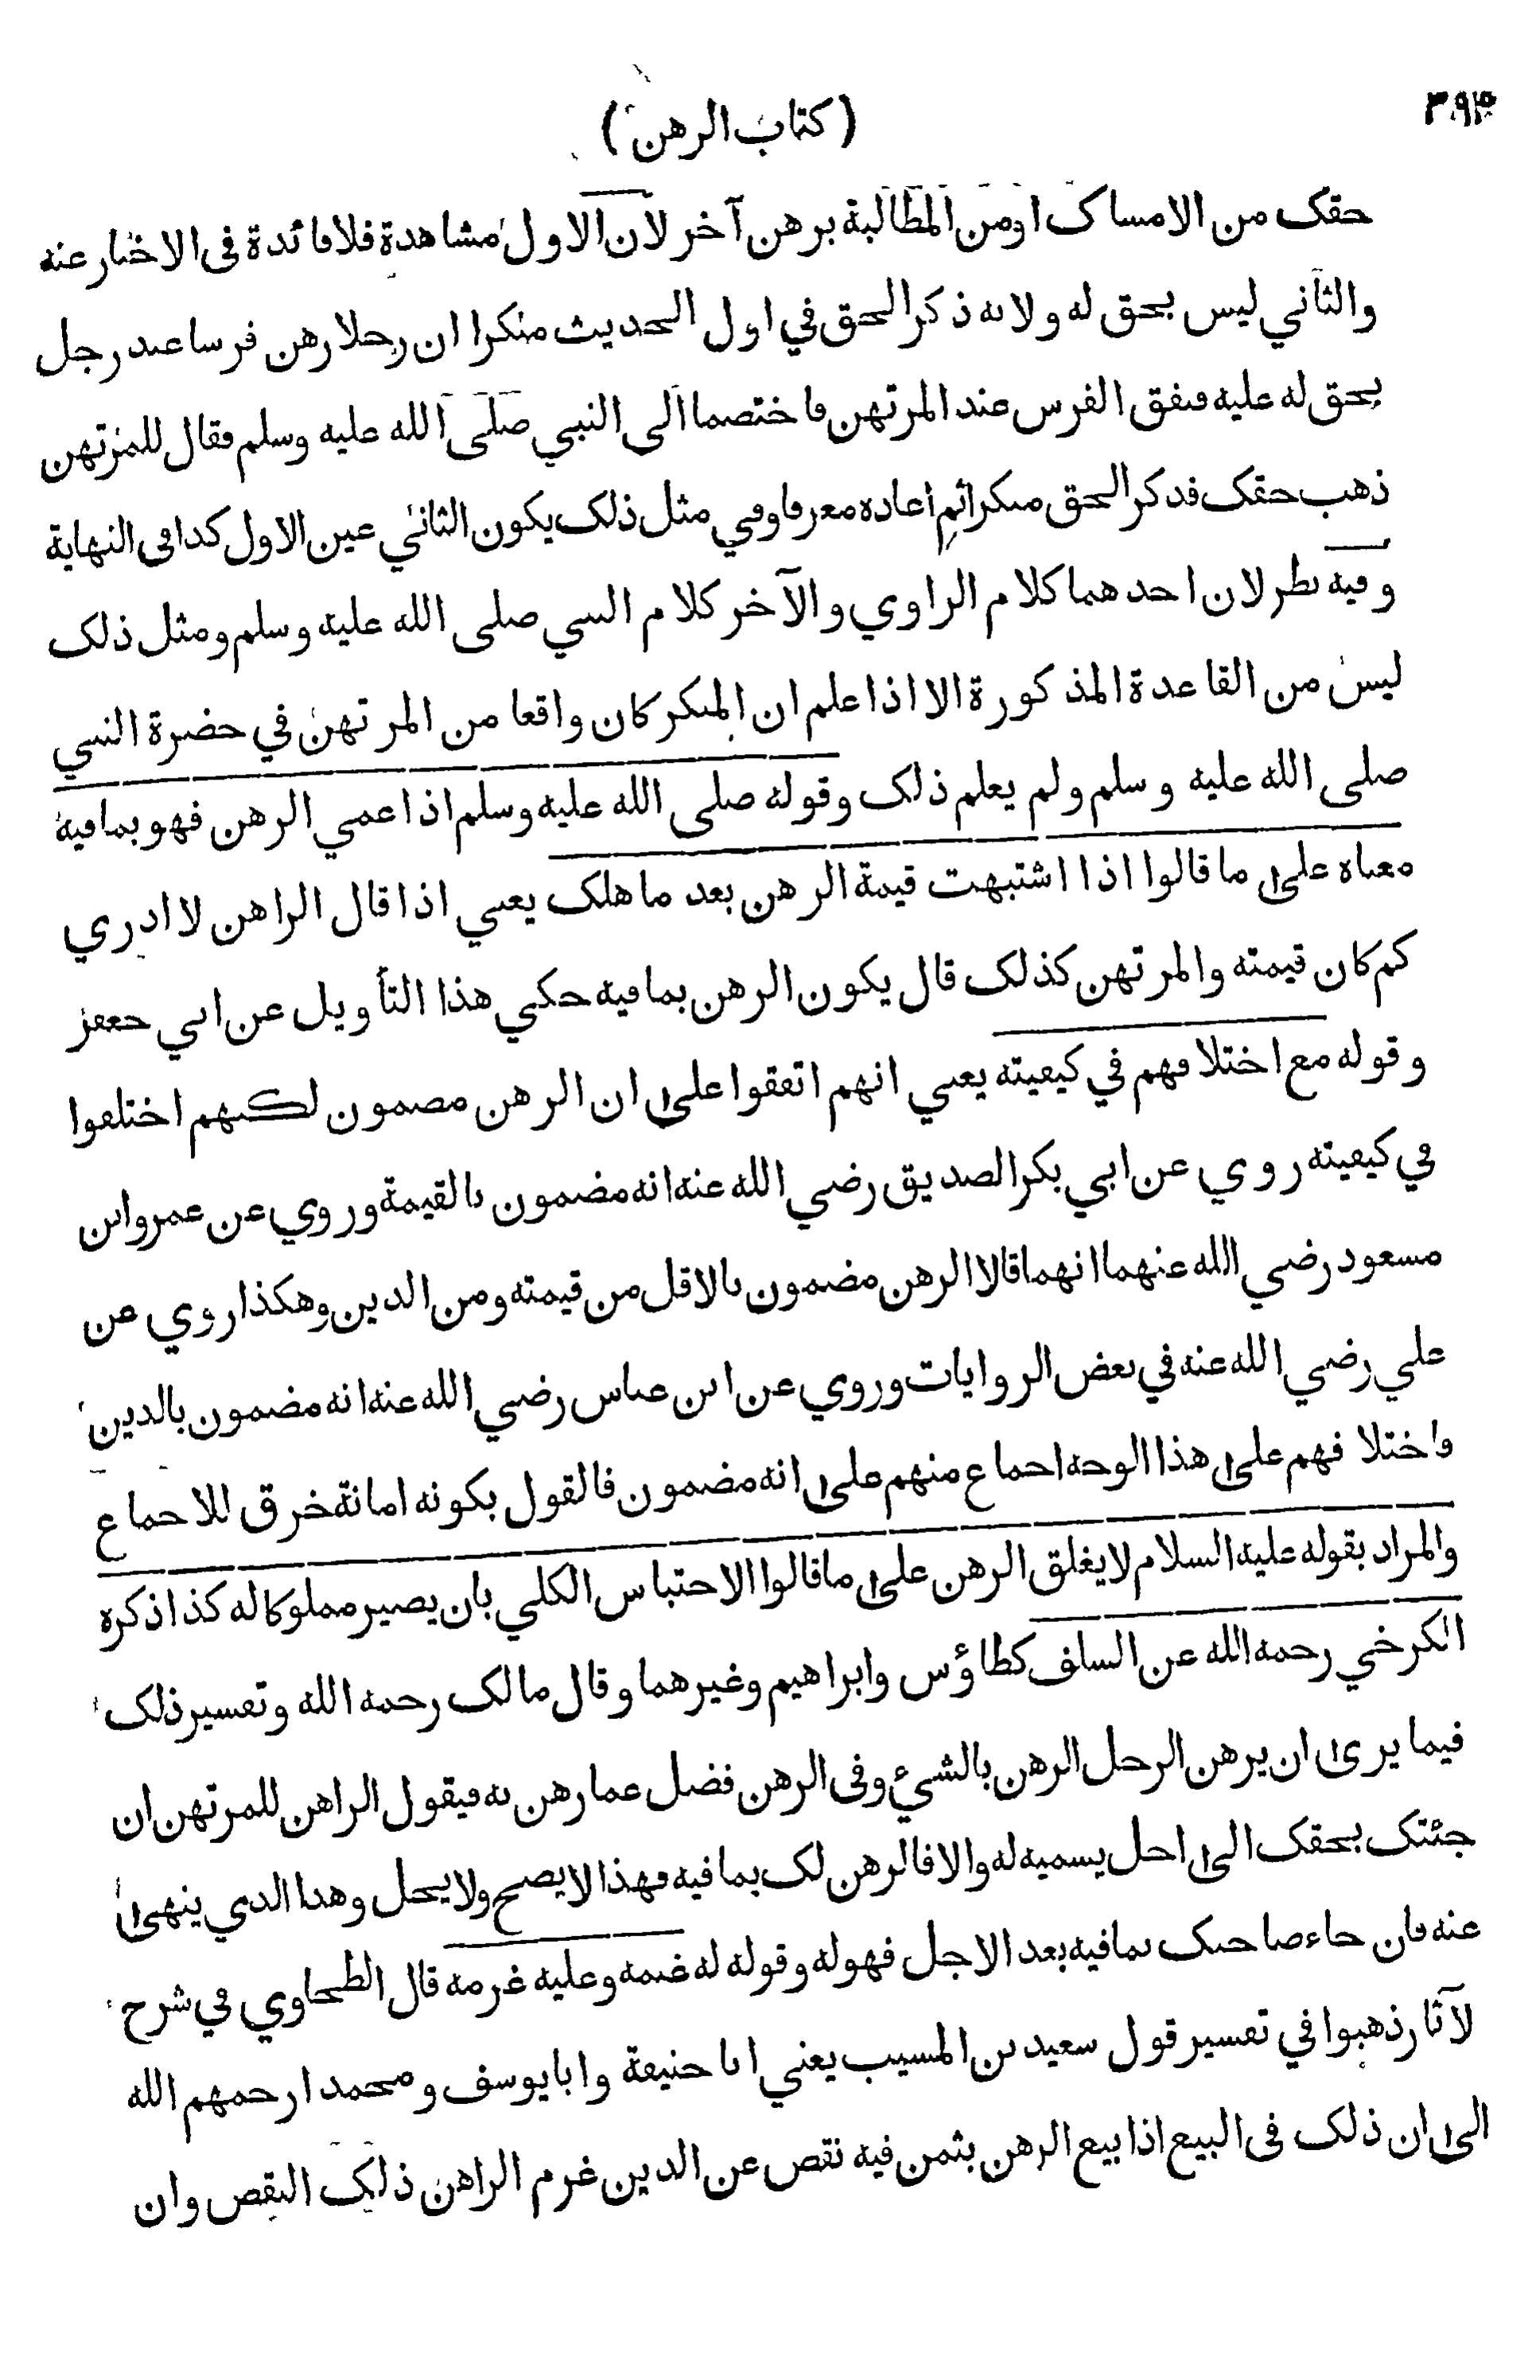 ٣٩٤
(كتاب الرهن)
حقك من الامساك اومن المطالبة برهن آخر لان الاول مشاهدة فلا فائدة فى الاخبار عنه
والثاني ليس بحق له ولانه ذكر الحق في اول الحديث منكرا ان رجلا رهن فرسا عند رجل
بحق له عليه فنفق الفرس عند المرتهن فاختصما الى النبي صلى الله عليه وسلم فقال للمرتهن
ذهب حقك فذكر الحق منكرا ثم اعاده معرفا وفي مثل ذلك يكون الثاني عين الاول كذا فى النهاية
وفيه نظر لان احدهما كلام الراوي والآخر كلام النبي صلى الله عليه وسلم ومثل ذلك
ليس من القاعدة المذكورة الا اذا علم ان المنكر كان واقعا من المرتهن في حضرة النبي
صلى الله عليه وسلم ولم يعلم ذلك وقوله صلى الله عليه وسلم اذا عمي الرهن فهو بما فيه
معناه على ما قالوا اذا اشتبهت قيمة الرهن بعد ما هلك يعني اذا قال الراهن لا ادري
كم كان قيمته والمرتهن كذلك قال يكون الرهن بما فيه حكي هذا التأويل عن ابي جعفر
وقوله مع اختلافهم في كيفيته يعني انهم اتفقوا على ان الرهن مضمون لكنهم اختلفوا
في كيفيته روي عن ابي بكر الصديق رضي الله عنه انه مضمون بالقيمة وروي عن عمر وابن
مسعود رضي الله عنهما انهما قالا الرهن مضمون بالاقل من قيمته ومن الدين وهكذا روي عن
علي رضي الله عنه في بعض الروايات وروي عن ابن عباس رضي الله عنه انه مضمون بالدين
واختلافهم على هذا الوجه اجماع منهم على انه مضمون فالقول بكونه امانة خرق للاجماع
والمراد بقوله عليه السلام لا يغلق الرهن على ما قالوا الاحتباس الكلي بان يصير مملوكا له كذا ذكره
الكرخي رحمه الله عن السلف كطاؤس وابراهيم وغيرهما وقال مالك رحمه الله وتفسير ذلك
فيما يرى ان يرهن الرجل الرهن بالشيء وفى الرهن فضل عما رهن به فيقول الراهن للمرتهن ان
جئتك بحقك الى اجل يسميه له والا فالرهن لك بما فيه فهذا لا يصح ولا يحل وهذا الذي ينهى
عنه فان جاء صاحبك بما فيه بعد الاجل فهو له وقوله له غنمه وعليه غرمه قال الطحاوي في شرح
لآثار ذهبوا في تفسير قول سعيد بن المسيب يعني ابا حنيفة وابا يوسف ومحمدا رحمهم الله
الى ان ذلك فى البيع اذا بيع الرهن بثمن فيه نقص عن الدين غرم الراهن ذلك النقص وان